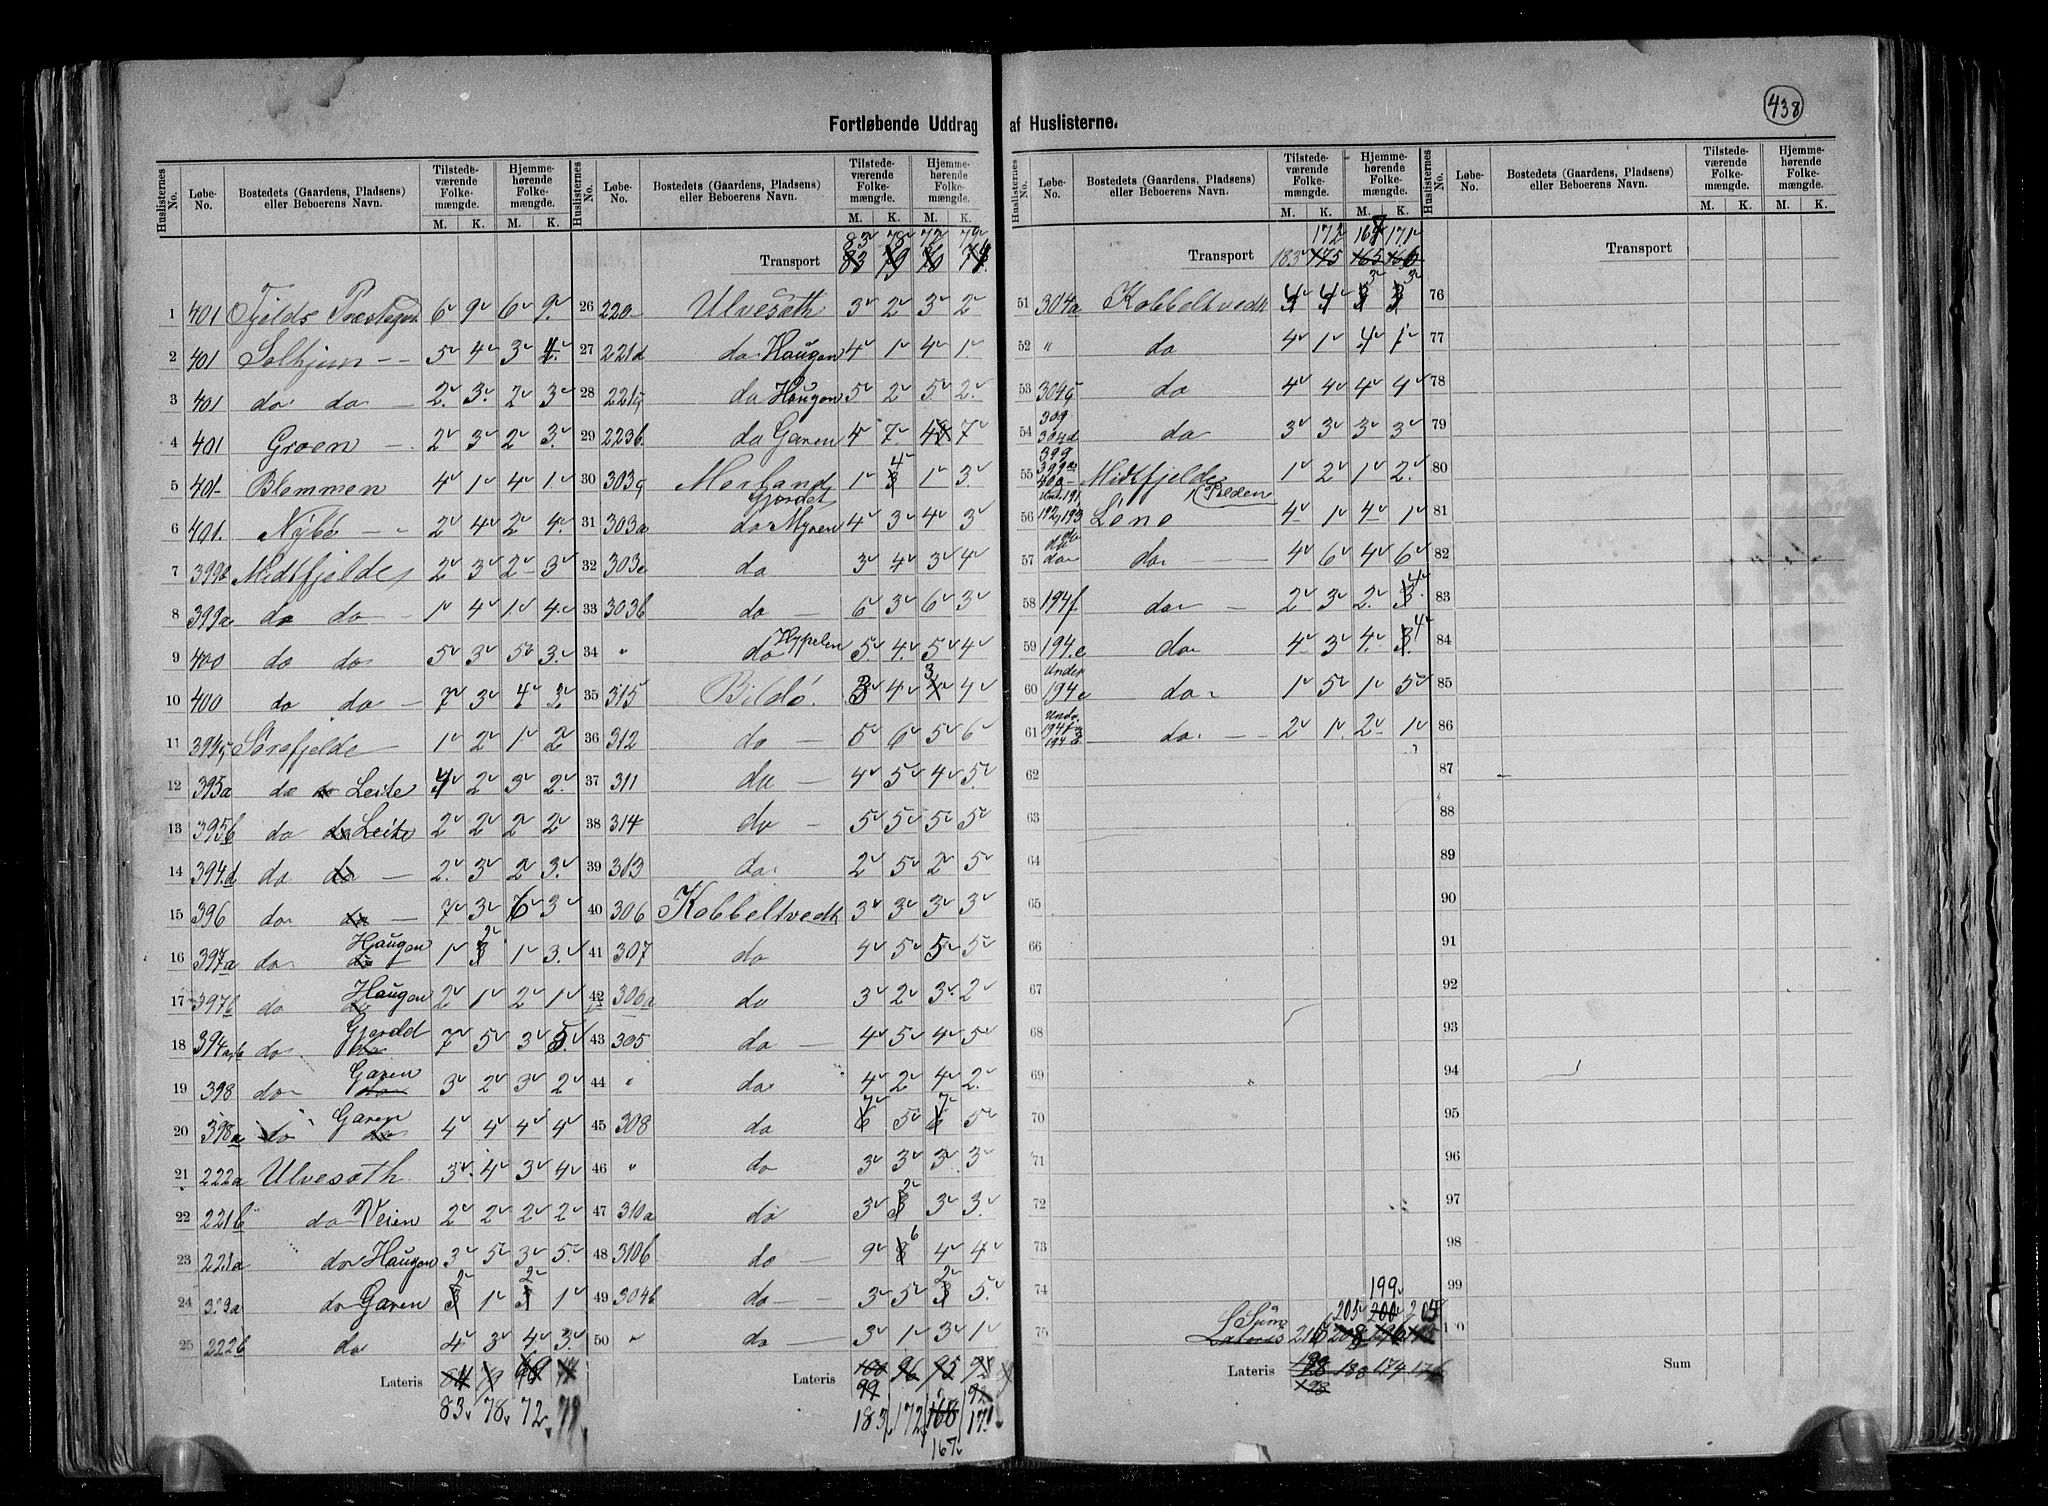 438
Fortløbende Uddrag af Huslisterne.
Huslisternes No. Løbe-No. Bostedets (Gaardens, Pladsen) eller Beboerens Navn. Tilstedeværende Folkemængde. M. K. Hjemmehørende Folkemængde. M. K.
1 401 Fjelds 6 9 6 9
2 401 Solhjem 5 4 3 4
3 401 do do 2 3 2 3
4 401 Groen 2 3 2 3
5 401 Blommen 4 1 4 1
6 401 Nybö 2 4 2 4
7 399a Midtfjelde 2 3 2 3
8 399a do do 1 4 1 4
9 400 do do 5 3 5 3
10 400 do do 7 3 4 3
11 Sörefjelde 1 2 1 2
12 395a do do Leite 4 2 3 2
13 395b do do Leite 2 2 2 2
14 394d do do 2 3 2 3
15 396 do do 7 3 6 3
16 397a do do Haugen 1 2 1 3
17 397b do do Haugen 2 1 2 1
18 do do 7 5 3 5
19 398 do do Garen 3 2 3 2
20 398a do do Garen 4 4 4 4
21 222a Ulvesæth 3 4 3 4
22 221b do Veien 2 2 2 2
23 221a do Haugen 3 5 3 5
24 do Garen 2 1 2 1
25 222b do 4 3 4 3
Lateris
83 78 72 79
Huslisternes No. Løbe-No. Bostedets (Gaardens, Pladsen) eller Beboerens Navn. Tilstedeværende Folkemængde. M. K. Hjemmehørende Folkemængde. M. K.
83 78 72 79
Transport 83 79 70
26 220 Ulvesæth 3 2 3 2
27 221d do Haugen 4 1 4 1
28 221c do Haugen 5 2 5 2
29 223b do Garen 4 7 4 7
30 303c Morland Gjerdet 1 4 1 3
31 303a do Myren 4 3 4 3
32 303e do 3 4 3 4
33 303b do 6 3 6 3
34 " do Hyppelen 5 4 5 4
35 315 Bildö 3 4 3 4
36 312 do 5 6 5 6
37 311 do 4 5 4 5
38 314 do 5 5 5 5
39 313 do 2 5 2 5
40 306 Kobbeltvedt 3 3 3 3
41 307 do 4 5 5 5
42 306a do 3 2 3 2
43 305 do 4 5 4 5
44 " do 4 2 4 2
45 308 do 7 5 7 5
46 " do 3 3 3 3
47 310a do 3 2 3 3
48 310b do 9 6 4 4
49 304b do 3 5 2 5
50 " do 3 1 3 1
Lateris 100 96 95
99 92
183 172 168 171
167
Huslisternes No. Løbe-No. Bostedets (Gaardens, Pladsen) eller Beboerens Navn. Tilstedeværende Folkemængde. M. K. Hjemmehørende Folkemængde. M. K.
172 171
Transport 183 175 165 166
51 304a Kobbeltvedt 4 4 3 3
52 " do 4 1 4 1
53 304c do 4 4 4 4
54 309 304d do 3 3 3 3
55 399 Midtfjelde 1 2 1 2
56 192, 193 Löno 4 1 4 1
57 do do 4 6 4 6
58 194f do 2 3 2 4
59 194e do 4 3 4 4
60 Under 194e do 1 5 1 5
61 do 2 1 2 1
62
63
64
65
66
67
68
69
70
71
72
73
74 199
205 200
75 Lateris
Lateris 188 174 176
Huslisternes No. Løbe-No. Bostedets (Gaardens, Pladsen) eller Beboerens Navn. Tilstedeværende Folkemængde. M. K. Hjemmehørende Folkemængde. M. K.
Transport
76
77
78
79
80
81
82
83
84
85
86
87
88
89
90
91
92
93
94
95
96
97
98
99
Sum